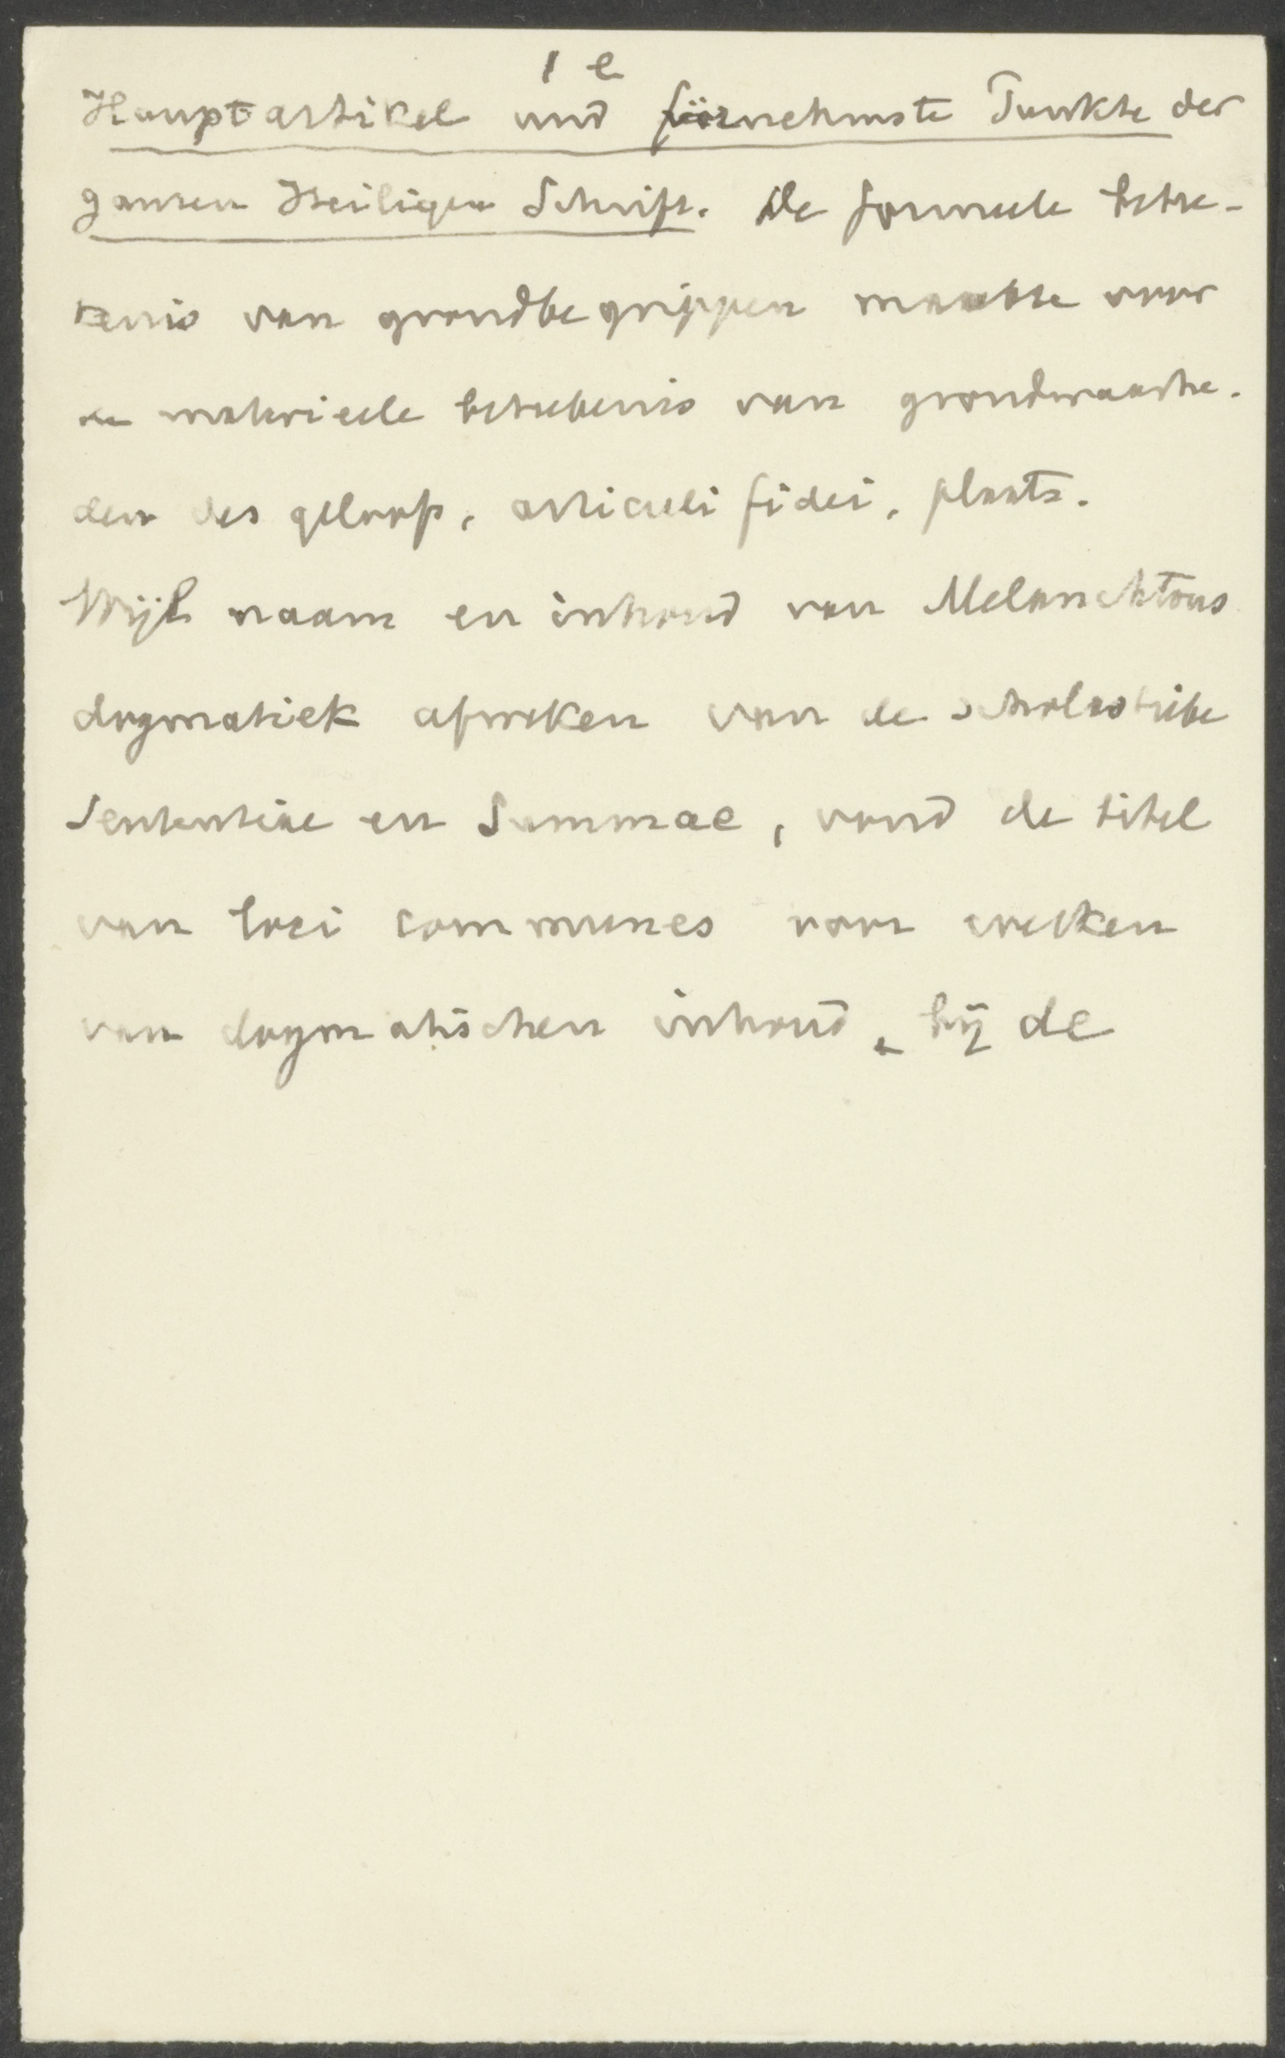 1 e
Hauptartikel und fürnehmste Punkte der
ganzen Heiligen Schrift. De formeele betee-
kenis van grondbegrippen maakte voor
de materieele beteekenis van grondwaarhe-
den des geloofs, articuli fidei, plaats.
Wijl naam en inhoud van Melanchtons
dogmatiek afweken van de scholastieke
Sententiae en Summae, vond de titel
van loci communes voor werken
van dogmatischen inhoud, bij de